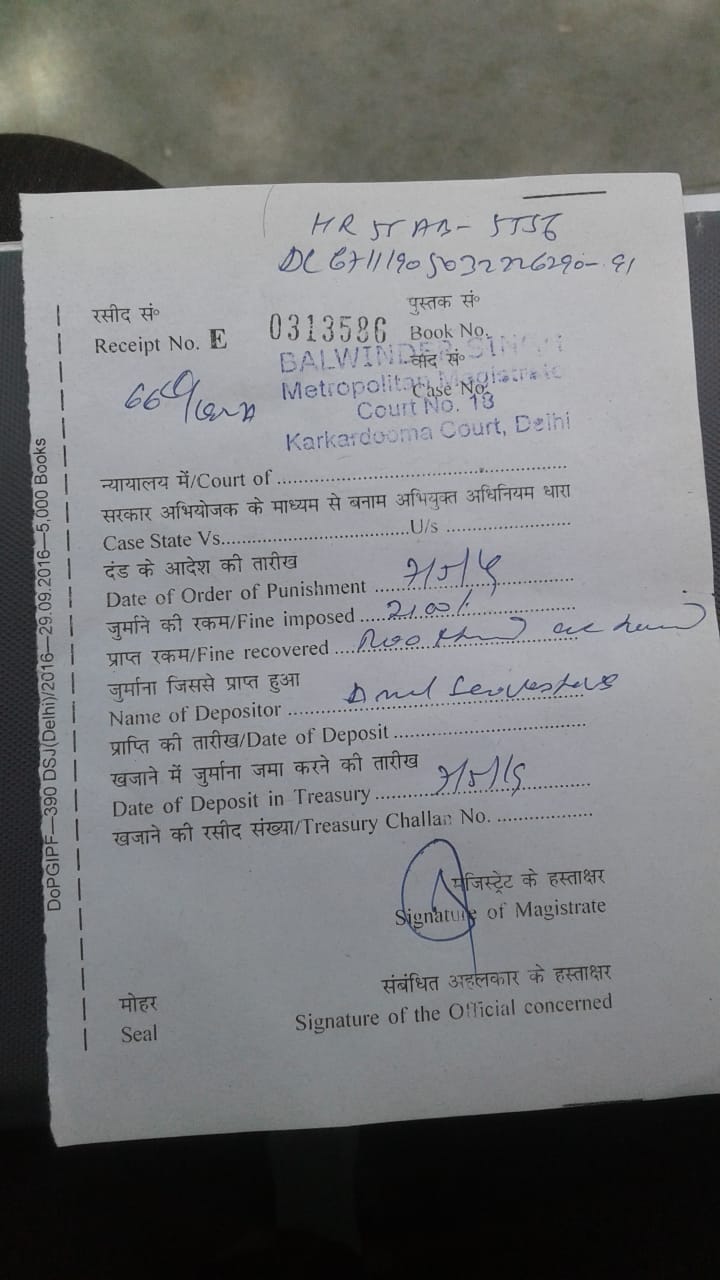 HR 55 AB - 5756
रसीद सं॰
पुस्तक सं॰
Receipt No. E 0313586 Book No.
BALWINDER SINGH
वाद सं॰
Metropolitan Magistrate
Case No.
Court No. 18
Karkardooma Court, Delhi
न्यायालय में/Court of ..........
सरकार अभियोजक के माध्यम से बनाम अभियुक्त अधिनियम धारा
Case State Vs..........U/s ..........
दंड के आदेश की तारीख
Date of Order of Punishment ..........
जुर्माने की रकम/Fine imposed ..........
प्राप्त रकम/Fine recovered ..........
जुर्माना जिससे प्राप्त हुआ
Name of Depositor ..........
प्राप्ति की तारीख/Date of Deposit ..........
खजाने में जुर्माना जमा करने की तारीख
Date of Deposit in Treasury ..........
खजाने की रसीद संख्या/Treasury Challan No. ..........
मजिस्ट्रेट के हस्ताक्षर
Signature of Magistrate
संबंधित अहलकार के हस्ताक्षर
Signature of the Official concerned
मोहर
Seal
DoPGIPF—390 DSJ(Delhi)/2016—29.09.2016—5,000 Books